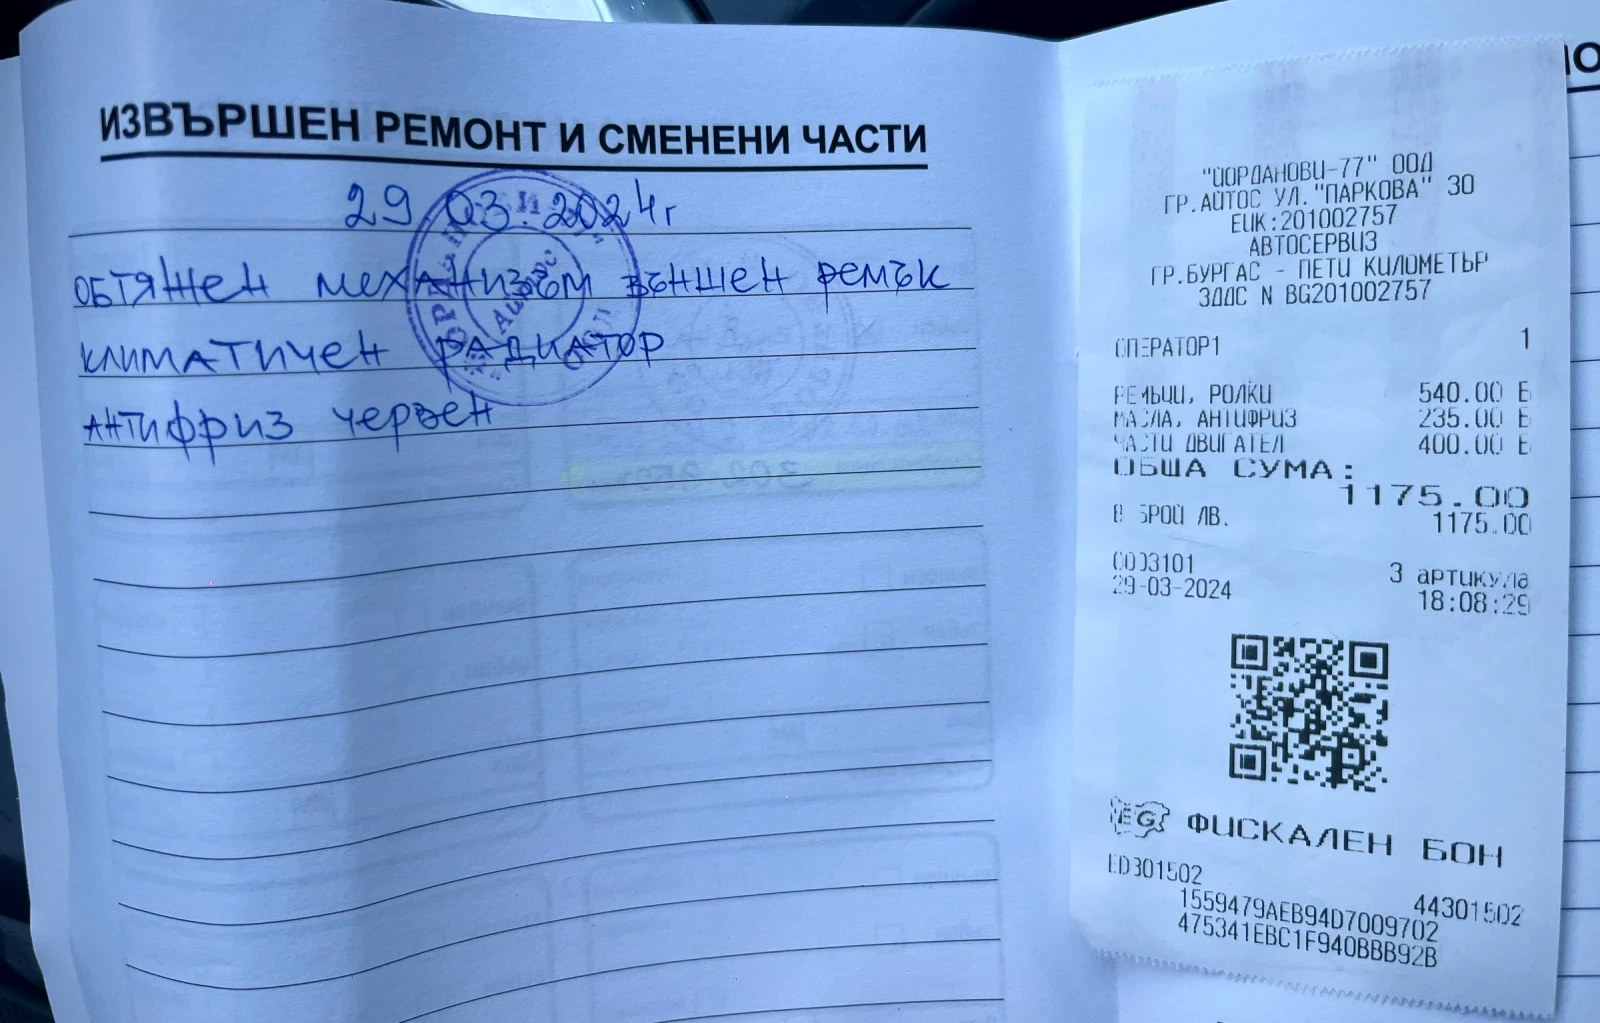 ИЗВЪРШЕН РЕМОНТ И СМЕНЕНИ ЧАСТИ
29.03.2024г
ОБТЯЖЕН МЕХАНИЗЪМ ВЪНШЕН РЕМЪК
КЛИМАТИЧЕН РАДИАТОР
АНТИФРИЗ ЧЕРВЕН
"ЙОРДАНОВИ-77" ООД
ГР.АЙТОС УЛ."ПАРКОВА" 30
ЕИК:201002757
АВТОСЕРВИЗ
ГР.БУРГАС - ПЕТИ КИЛОМЕТЪР
ЗДДС N BG201002757
ОПЕРАТОР1 1
РЕМЪЦИ, РОЛКИ 540.00 Б
МАСЛА, АНТИФРИЗ 235.00 Б
ЧАСТИ ДВИГАТЕЛ 400.00 Б
ОБЩА СУМА:
1175.00
В БРОЙ ЛВ. 1175.00
0003101 3 артикула
29-03-2024 18:08:29
ФИСКАЛЕН БОН
ED301502 44301502
1559479AEB94D7009702
475341EBC1F940BBB92B